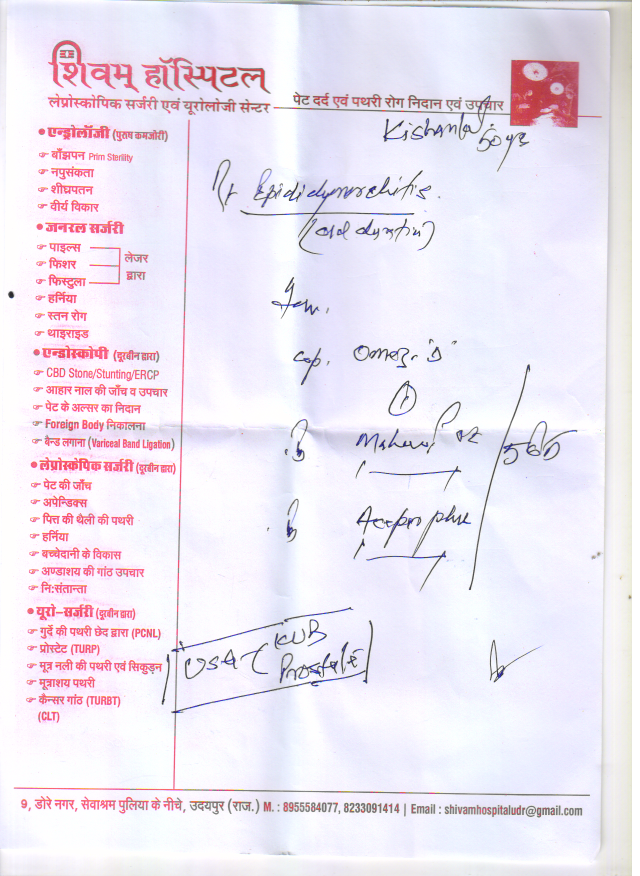 शिवम् हॉस्पिटल
लेप्रोस्कोपिक सर्जरी एवं यूरोलोजी सेन्टर
पेट दर्द एवं पथरी रोग निदान एवं उपचार
50 yrs
• एन्ड्रोलॉजी (पुरुष कमजोरी)
बाँझपन Prim Sterility
नपुसंकता
शीघ्रपतन
वीर्य विकार
• जनरल सर्जरी
पाइल्स
फिशर
फिस्टुला
लेजर
द्वारा
हर्निया
स्तन रोग
थाइराइड
Epididymorchitis
• एन्डोस्कोपी (दूरबीन द्वारा)
CBD Stone/Stunting/ERCP
आहार नाल की जाँच व उपचार
पेट के अल्सर का निदान
Foreign Body निकालना
बैन्ड लगाना (Variceal Band Ligation)
cap. Omez-"D"
• लेप्रोस्कोपिक सर्जरी (दूरबीन द्वारा)
पेट की जाँच
अपेन्डिक्स
पित्त की थैली की पथरी
हर्निया
बच्चेदानी के विकास
अण्डाशय की गांठ उपचार
नि:संतान्ता
• यूरो-सर्जरी (दूरबीन द्वारा)
गुर्दे की पथरी छेद द्वारा (PCNL)
प्रोस्टेट (TURP)
मूत्र नली की पथरी एवं सिकुड़न
मूत्राशय पथरी
कैन्सर गांठ (TURBT)
(CLT)
KUB
Prostate
9, डोरे नगर, सेवाश्रम पुलिया के नीचे, उदयपुर (राज.) M. : 8955584077, 8233091414 | Email : shivamhospitaludr@gmail.com